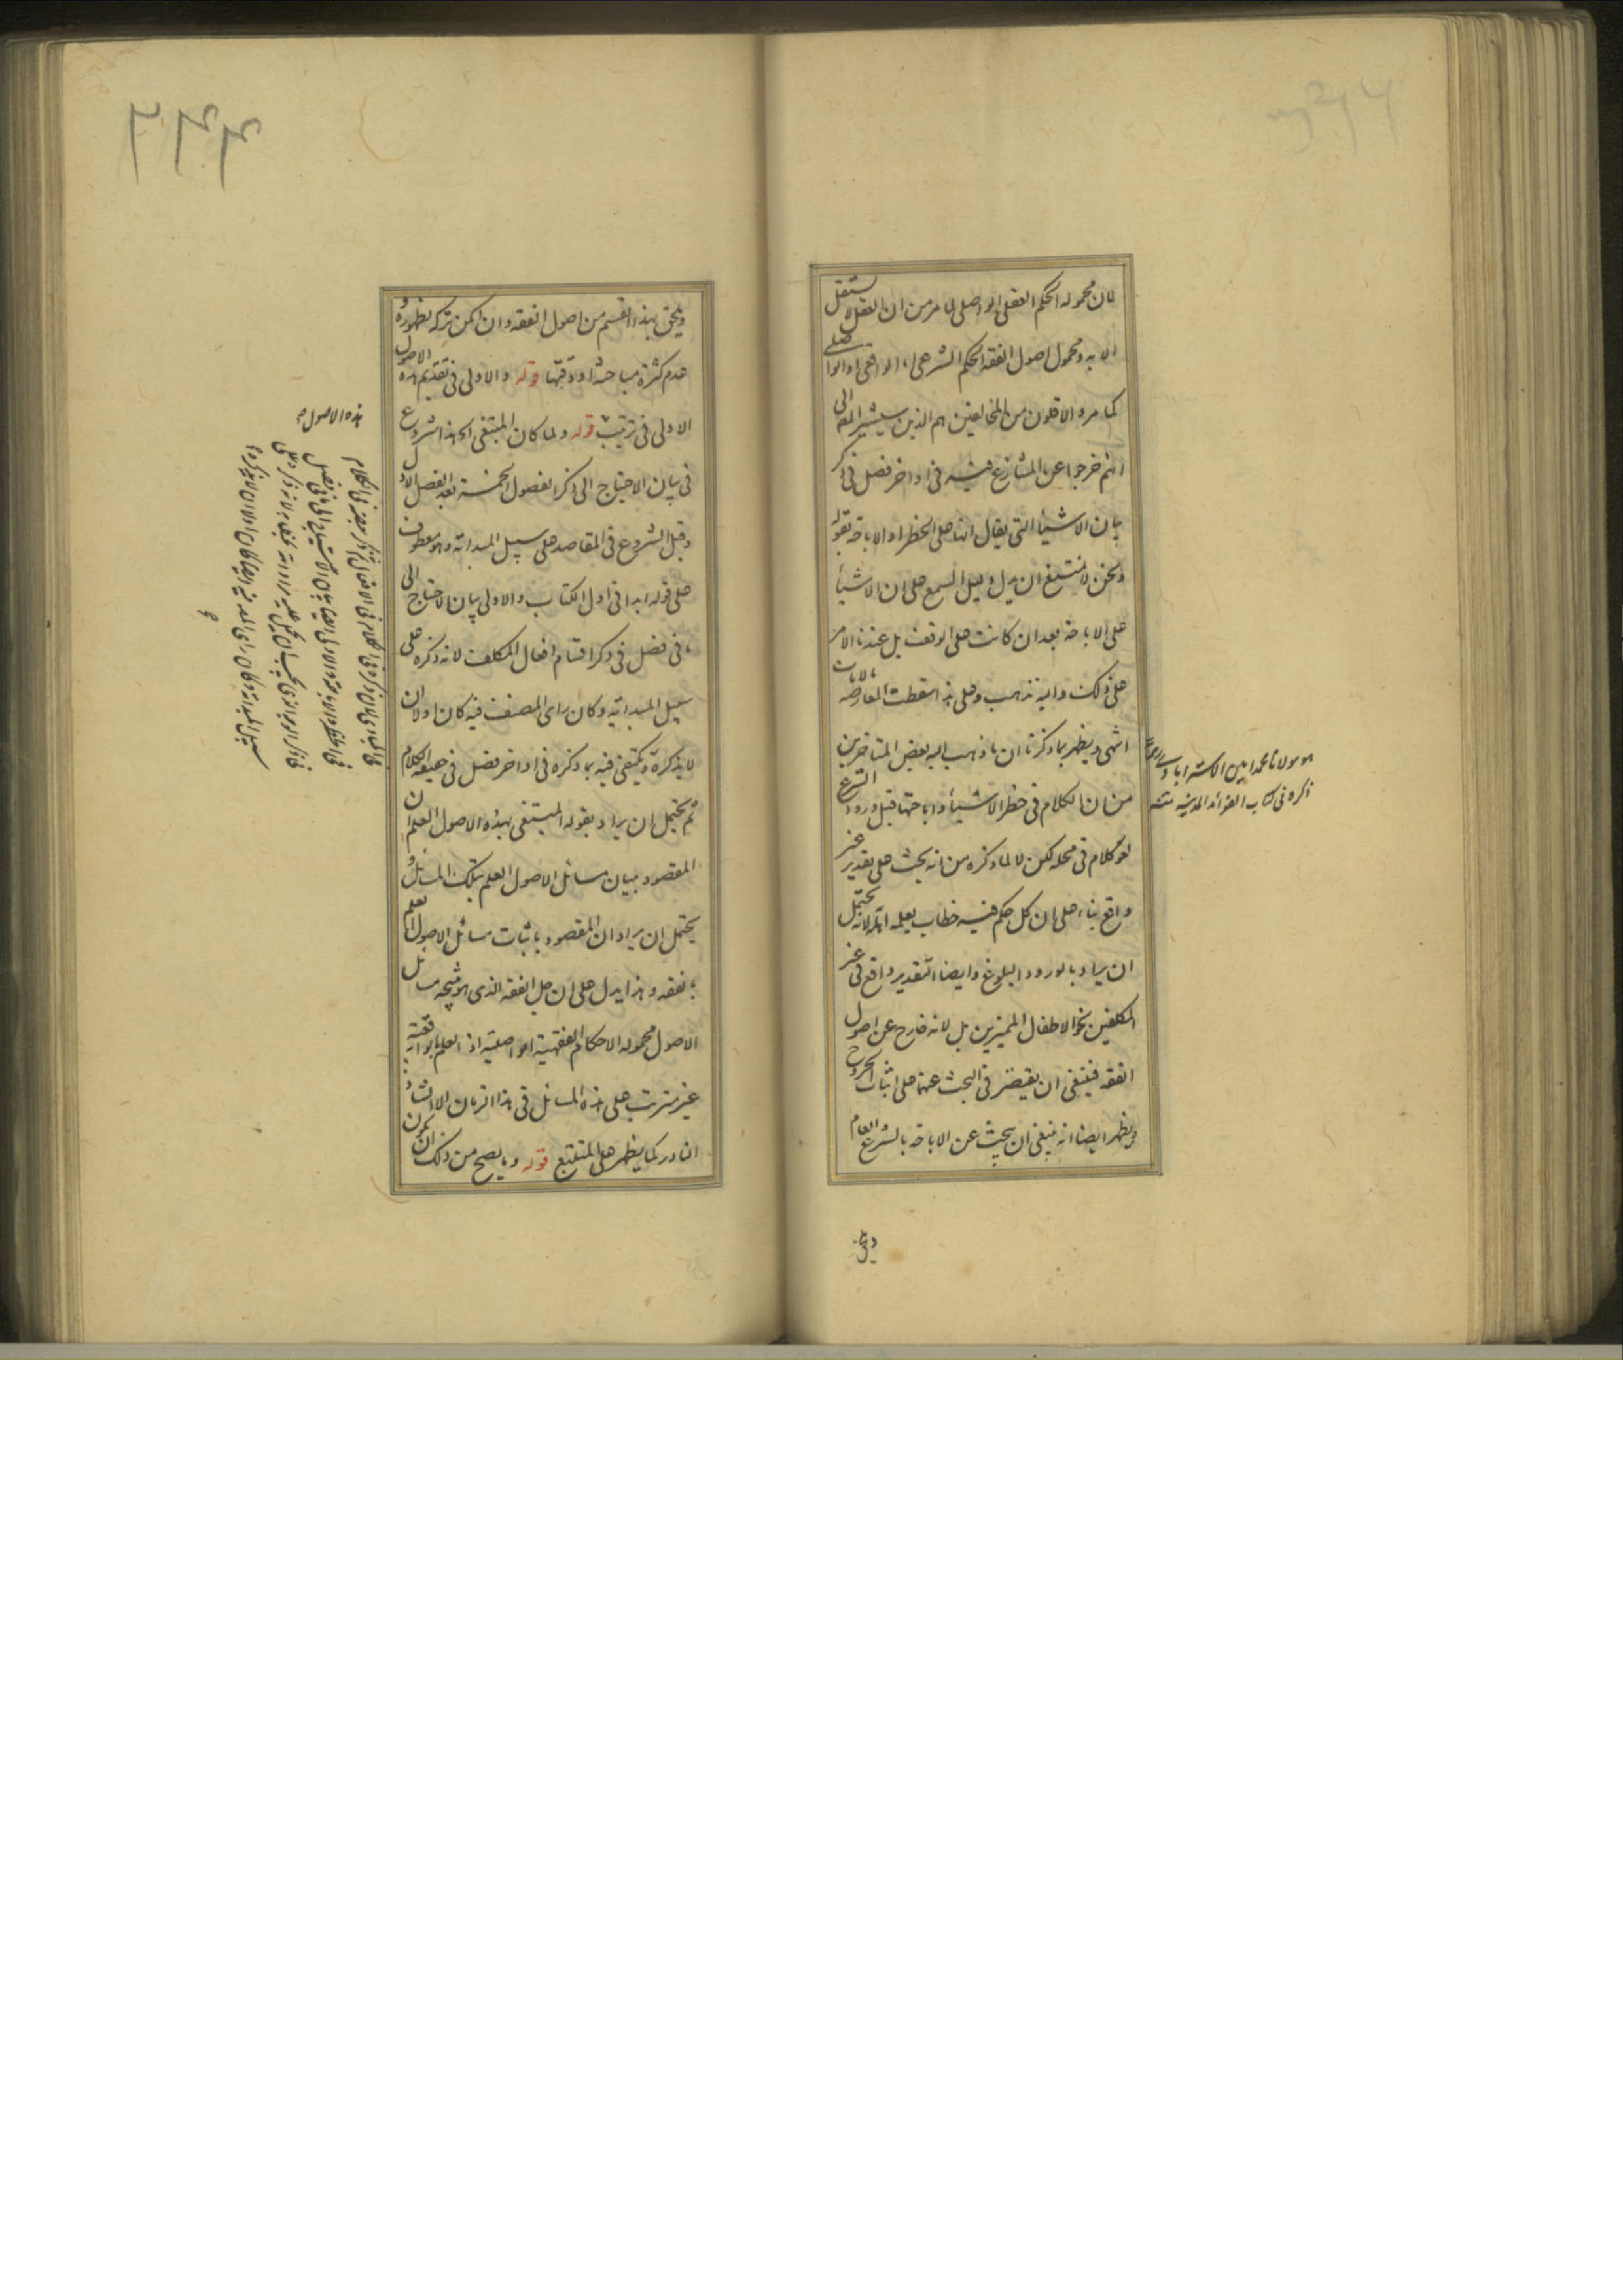 لان محموله الحكم العقلى الواصلى لما مر من ان العقل لا يستقل
الا به ومحمول اصول الفقه الحكم الشرعى الواقعى او الواصلى
كما مر والاقلون من المخالفين هم الذين سيشير المص الى
انهم خرجوا عن المتنازع فيه فى اواخر فصل فى ذكر
بيان الاشيأ التى يقال انها على الحظر او الاباحة بقوله
ونحن لا نمتنع ان يدل دليل السمع على ان الاشيأ
على الاباحة بعد ان كانت على الوقف بل عندنا الامر
على ذلك واليه نذهب وعلى هذا سقطت المعارضة بالايات
انتهى ويظهر بما ذكرنا ان ما ذهب اليه بعض المتاخرين
من ان الكلام فى حظر الاشيأ واباحتها قبل ورود الشرع
لغو كلام فى محله لكن لا لما ذكره من انه بحث على تقدير غير
واقع بناء على ان كل حكم فيه خطاب يعلمه اهله لانه يحتمل
ان يراد بالورود البلوغ وايضا التقدير واقع فى غير
المكلفين نحو الاطفال المميزين بل لانه خارج عن اصول
الفقه فينبغى ان يقتصر فى البحث عنها على اثبات الخروج
ويظهر ايضا انه ينبغى ان يبحث عن الاباحة بالشرع العام
ويلحق
هو مولانا محمد امين الاسترابادى
ذكره فى كتاب الفوائد المدنية منه
ويلحق بهذا القسم من اصول الفقه وان امكن تركه لظهوره و
عدم كثرة مباحثه او دقتها قوله والاولى فى تقديم هذه الاصول
الاولى فى ترتيب قوله ولما كان المبتغى الخ هذا شروع
فى بيان الاحتياج الى ذكر الفصول الخمسة بعد الفصل الاول
وقبل الشروع فى المقاصد على سبيل المبدائية وهو معطوف
على قوله ابدا فى اول الكتاب والاولى بيان الاحتياج الى
ما فى فصل فى ذكر اقسام افعال المكلف لانه ذكره على
سبيل المبدائية وكان راى المصنف فيه كان اولا ان
لا يذكره ويكتفى فيه بما ذكره فى اواخر فصل فى حقيقة الكلام
ثم يحتمل ان يراد بقوله المبتغى بهذه الاصول العلم ان
المقصود ببيان مسائل الاصول العلم بتلك المسائل و
يحتمل ان يراد ان المقصود باثبات مسائل الاصول العلم
بالفقه وهذا يدل على ان جل الفقه الذى هو نتيجه مسائل
الاصول محموله الاحكام الفقهية الواصلية اذ العلم بالواقعية
غير مترتب على هذه المسائل فى هذا الزمان الا الشاذ و
النادر كما يظهر على المتتبع قوله وما يصح من ذلك ان يكون
هذه الاصول